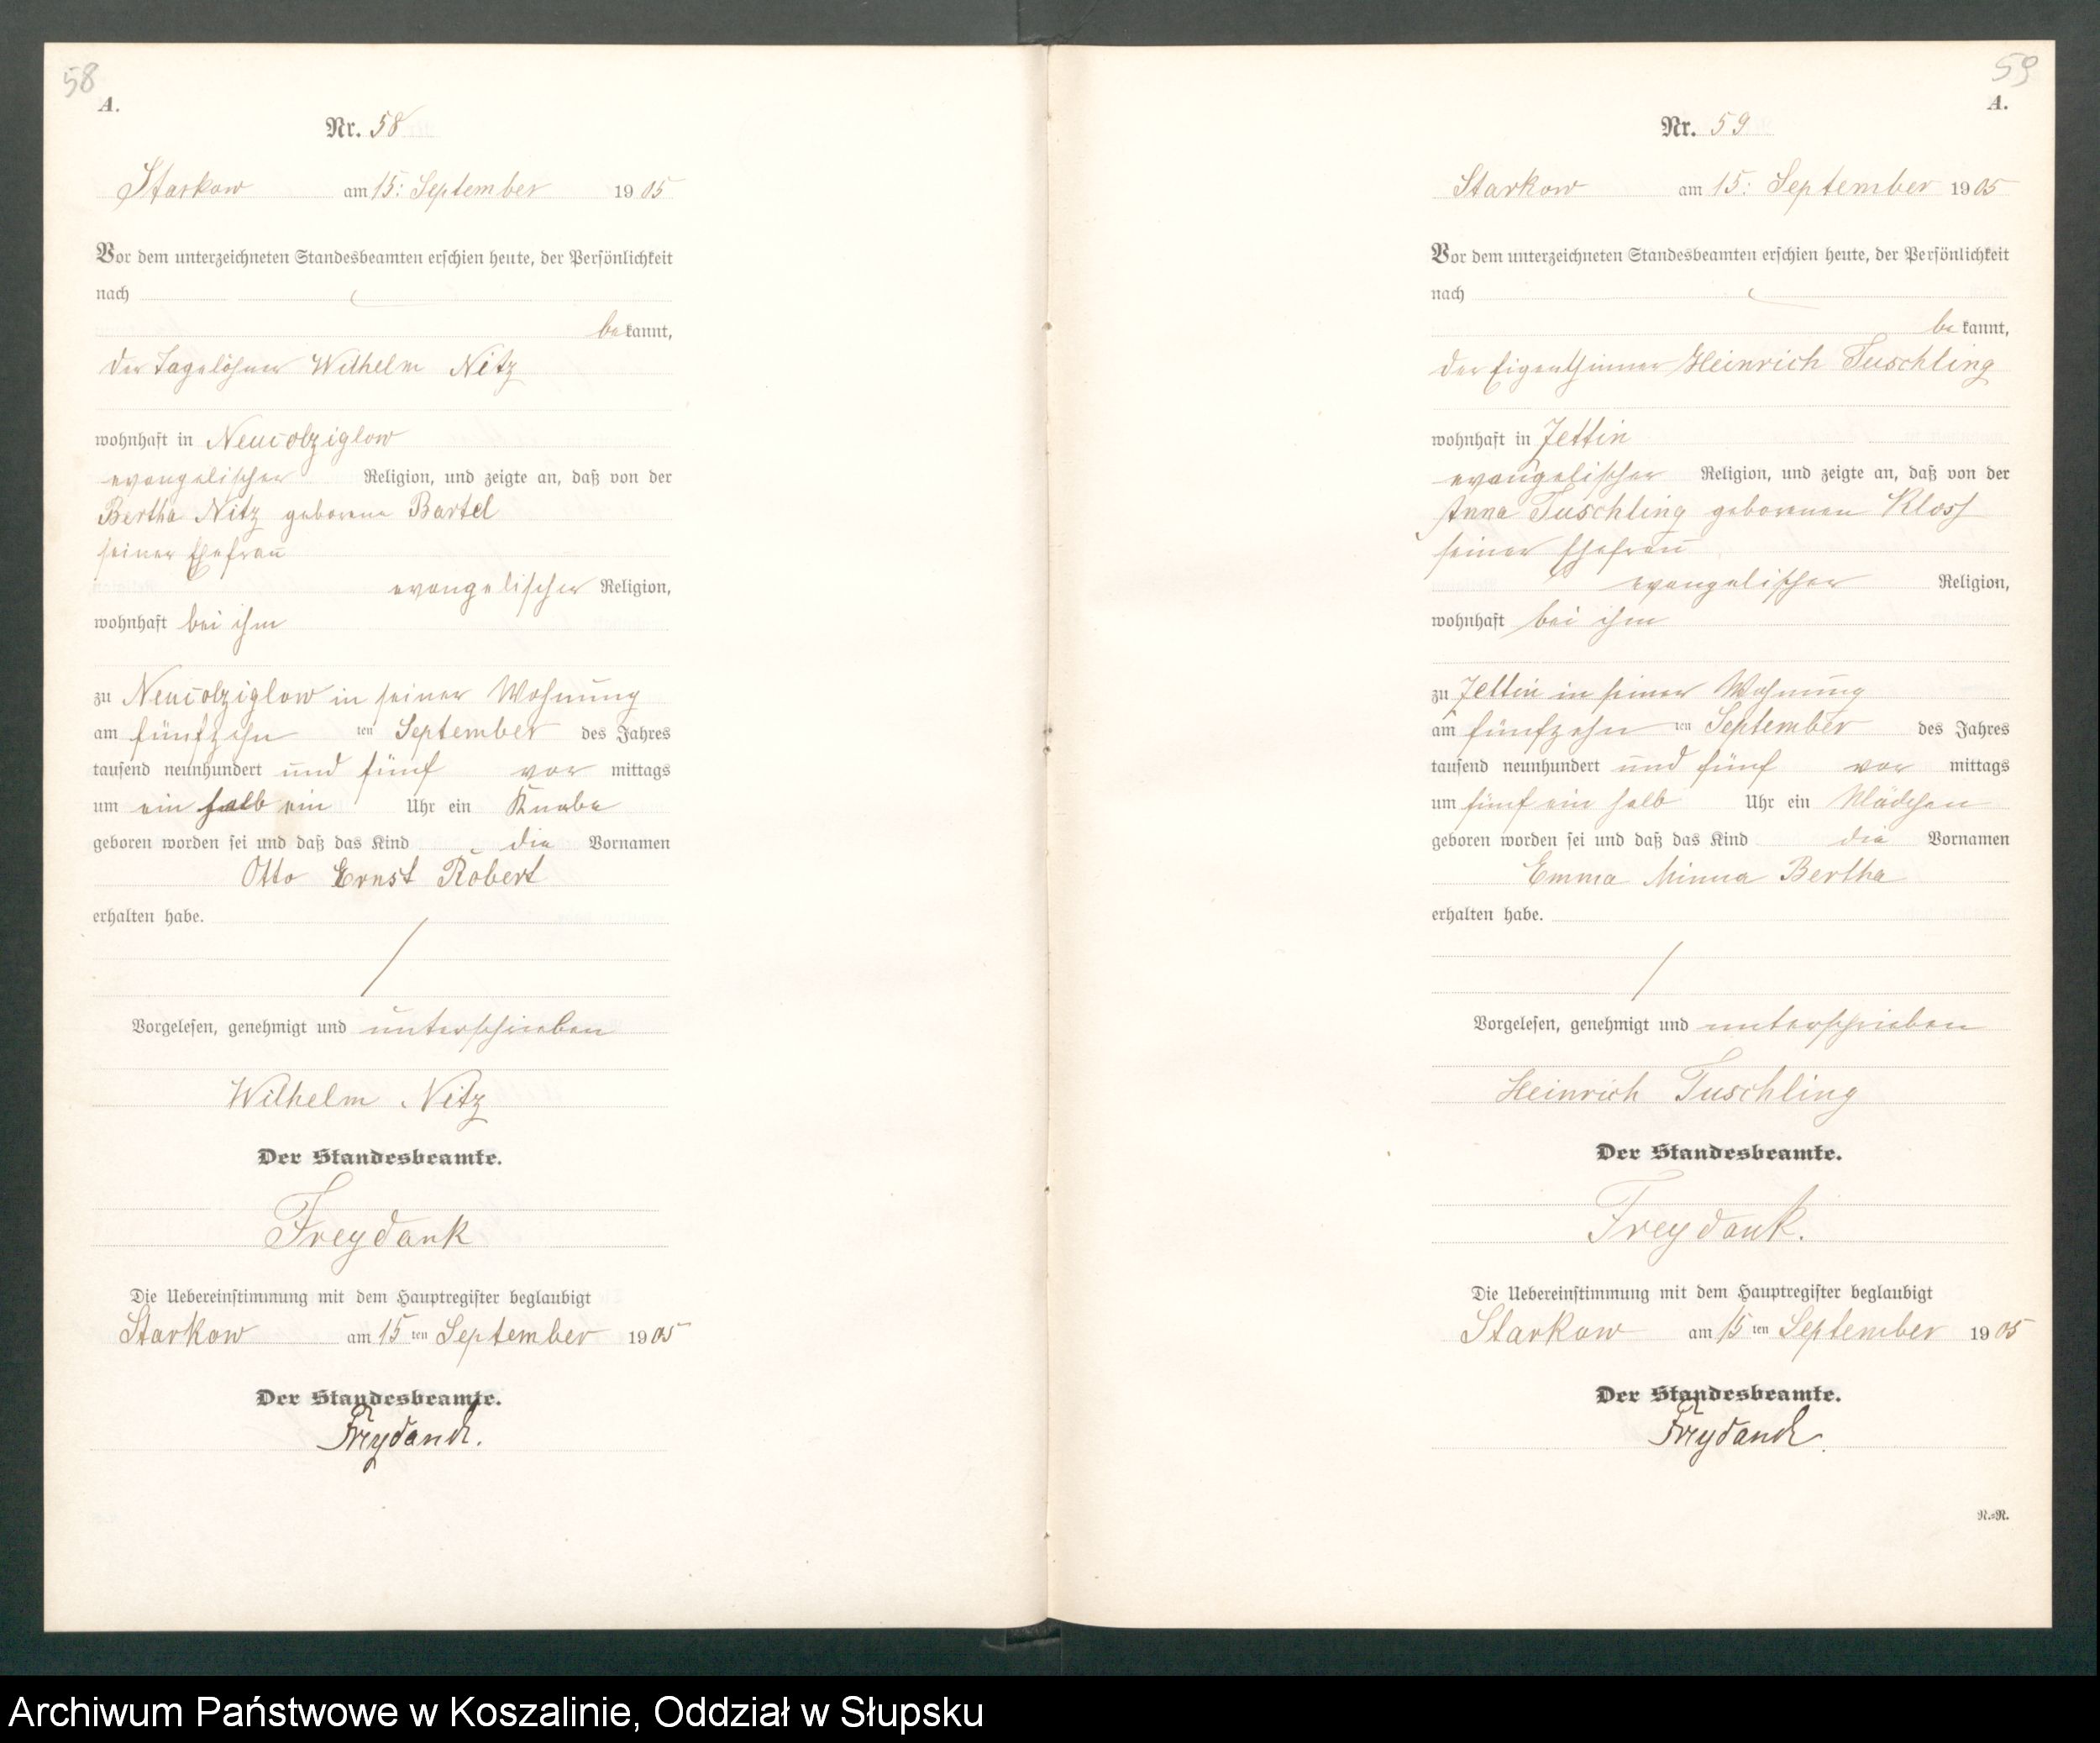 58
A.
Nr. 58
Starkow am 15: September 1905
Vor dem unterzeichneten Standesbeamten erschien heute, der Persönlichkeit
nach
bekannt,
der Tagelöhner Wilhelm Nitz
wohnhaft in Neucolziglow
evangelischer Religion, und zeigte an, daß von der
Bertha Nitz geborene Bartel
seiner Ehefrau
evangelischer Religion,
wohnhaft bei ihm
zu Neucolziglow in seiner Wohnung
am fünfzehn ten September des Jahres
tausend neunhundert und fünf vor mittags
um ein halb ein Uhr ein Knabe
geboren worden sei und daß das Kind die Vornamen
Otto Ernst Robert
erhalten habe.
Vorgelesen, genehmigt und unterschrieben
Wilhelm Nitz
Der Standesbeamte.
Freydank
Die Uebereinstimmung mit dem Hauptregister beglaubigt
Starkow am 15 ten September 1905
Der Standesbeamte.
Freydank.
59
A.
Nr. 59
Starkow am 15: September 1905
Vor dem unterzeichneten Standesbeamten erschien heute, der Persönlichkeit
nach
bekannt,
der Eigenthümer Heinrich Tuschling
wohnhaft in Jettin
evangelischer Religion, und zeigte an, daß von der
Anna Tuschling geborenen Kloss
seiner Ehefrau
evangelischer Religion,
wohnhaft bei ihm
zu Jettin in seiner Wohnung
am fünfzehn ten September des Jahres
tausend neunhundert und fünf vor mittags
um fünf ein halb Uhr ein Mädchen
geboren worden sei und daß das Kind die Vornamen
Emma Minna Bertha
erhalten habe.
Vorgelesen, genehmigt und unterschrieben
Heinrich Tuschling
Der Standesbeamte.
Freydank.
Die Uebereinstimmung mit dem Hauptregister beglaubigt
Starkow am 15 ten September 1905
Der Standesbeamte.
Freydank.
R.=R.
Archiwum Państwowe w Koszalinie, Oddział w Słupsku